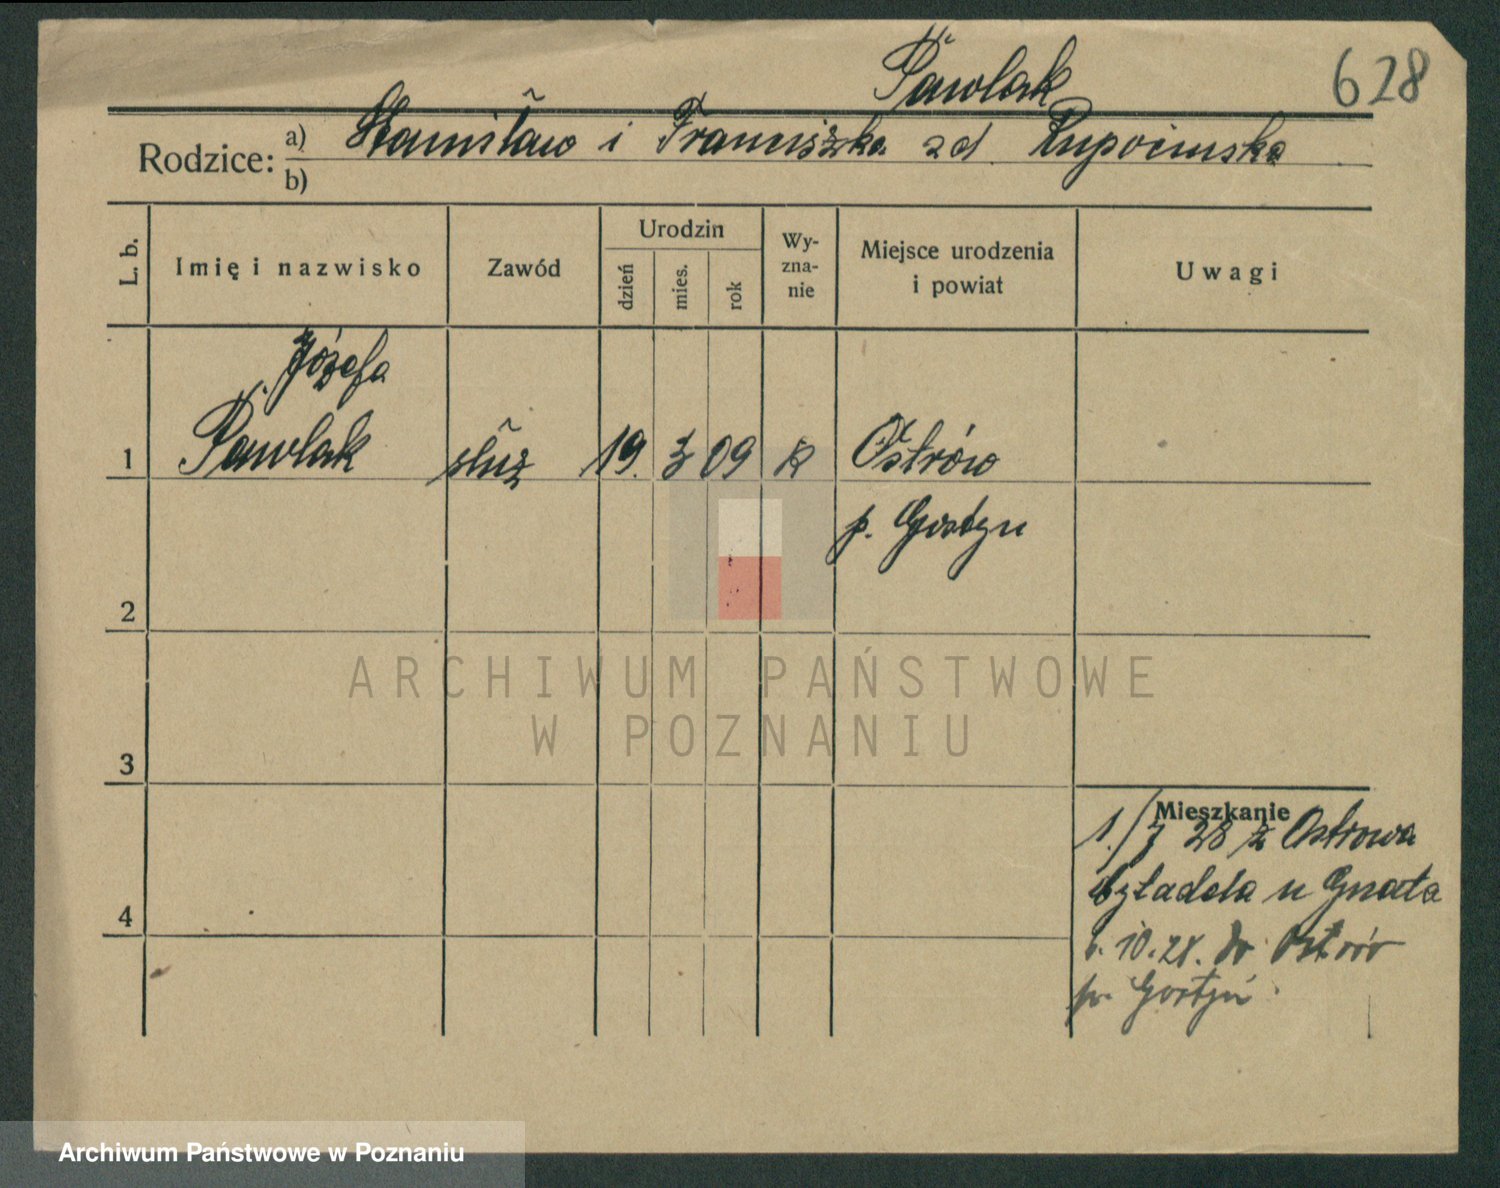 Pawlak
628
Rodzice: a) Stanisław i Franciszka zd.
b)
L. b.
Imię i nazwisko
Zawód
Urodzin
dzień
mies.
rok
Wy-
zna-
nie
Miejsce urodzenia
i powiat
Uwagi
Józefa
1 Pawlak służ 19. 3 09 k Ostrów
p. Gostyn
2
3
4
Mieszkanie
1./7 28 z Ostrowa
u Gnata
10.28. do Ostrów
p. Gostyń
ARCHIWUM PAŃSTWOWE
W POZNANIU
Archiwum Państwowe w Poznaniu